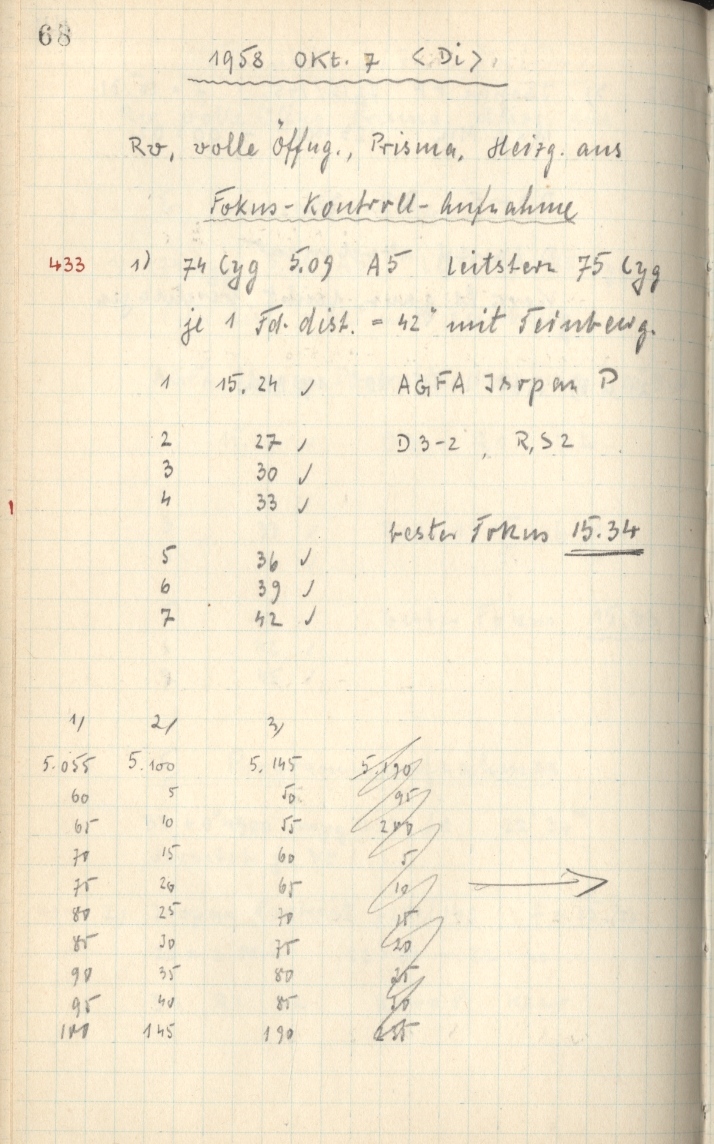 68
1958 Okt. 7 <Di>.
Rv, volle Öffng., Prisma, Heizg. aus
Fokus-Kontroll-Aufnahme
433 1) 74 Cyg 5.09 A5 Leitstern 75 Cyg
je 1 Fd. dist. = 42" mit Feinbewg.
1 15.24 ✓ AGFA Isopan P
2 27 ✓ D3-2, R, S2
3 30 ✓
1 4 33 ✓
bester Fokus 15.34
5 36 ✓
6 39 ✓
7 42 ✓
1) 2) 3)
5.055 5.100 5.145 5.190
60 5 50 95
65 10 55 200
70 15 60 5
75 20 65 10
80 25 70 15
85 30 75 20
90 35 80 25
95 40 85 30
100 145 190 235